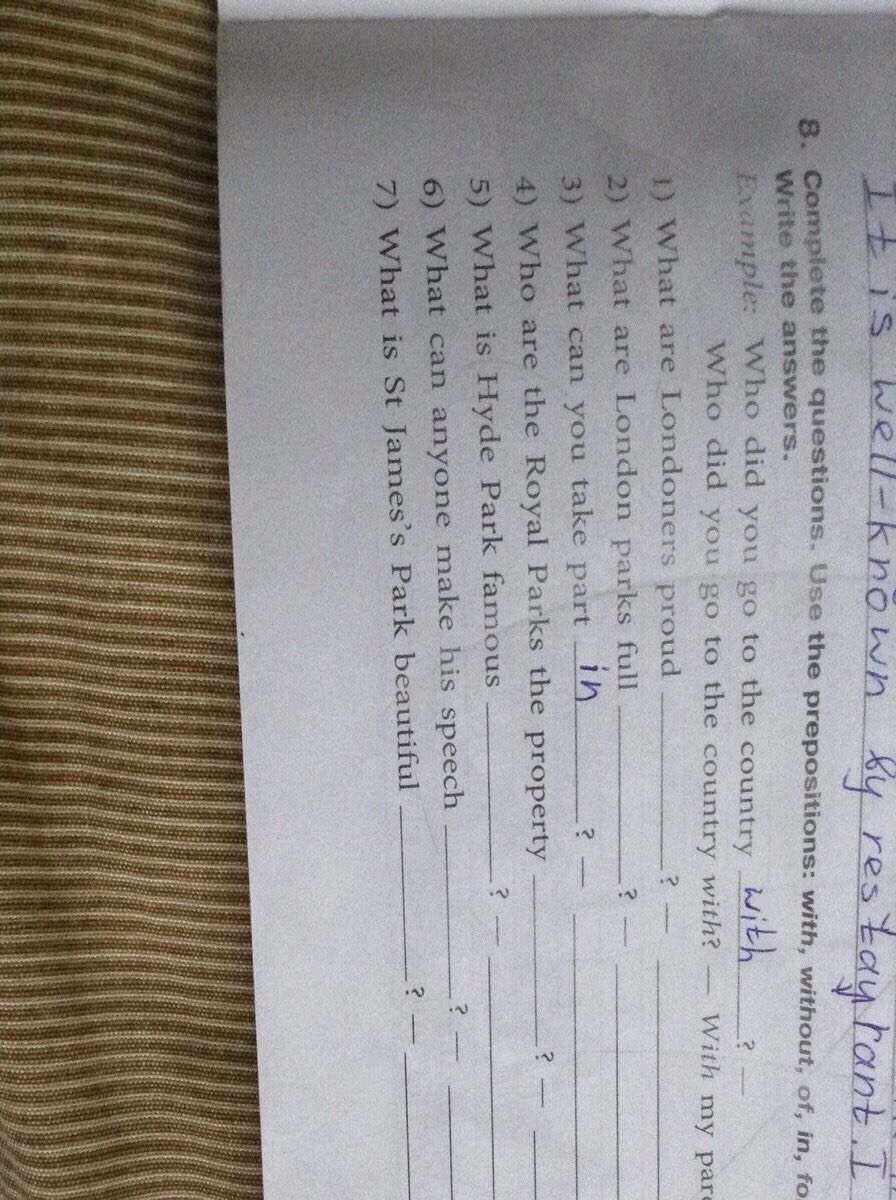 It is well-known by restaurant. I
8. Complete the questions. Use the prepositions: with, without, of, in, fo
Write the answers.
Example: Who did you go to the country with ? —
Who did you go to the country with? — With my par
1) What are Londoners proud ? —
2) What are London parks full ? —
3) What can you take part in ? —
4) Who are the Royal Parks the property ? —
5) What is Hyde Park famous ? —
6) What can anyone make his speech ? —
7) What is St James's Park beautiful ? —